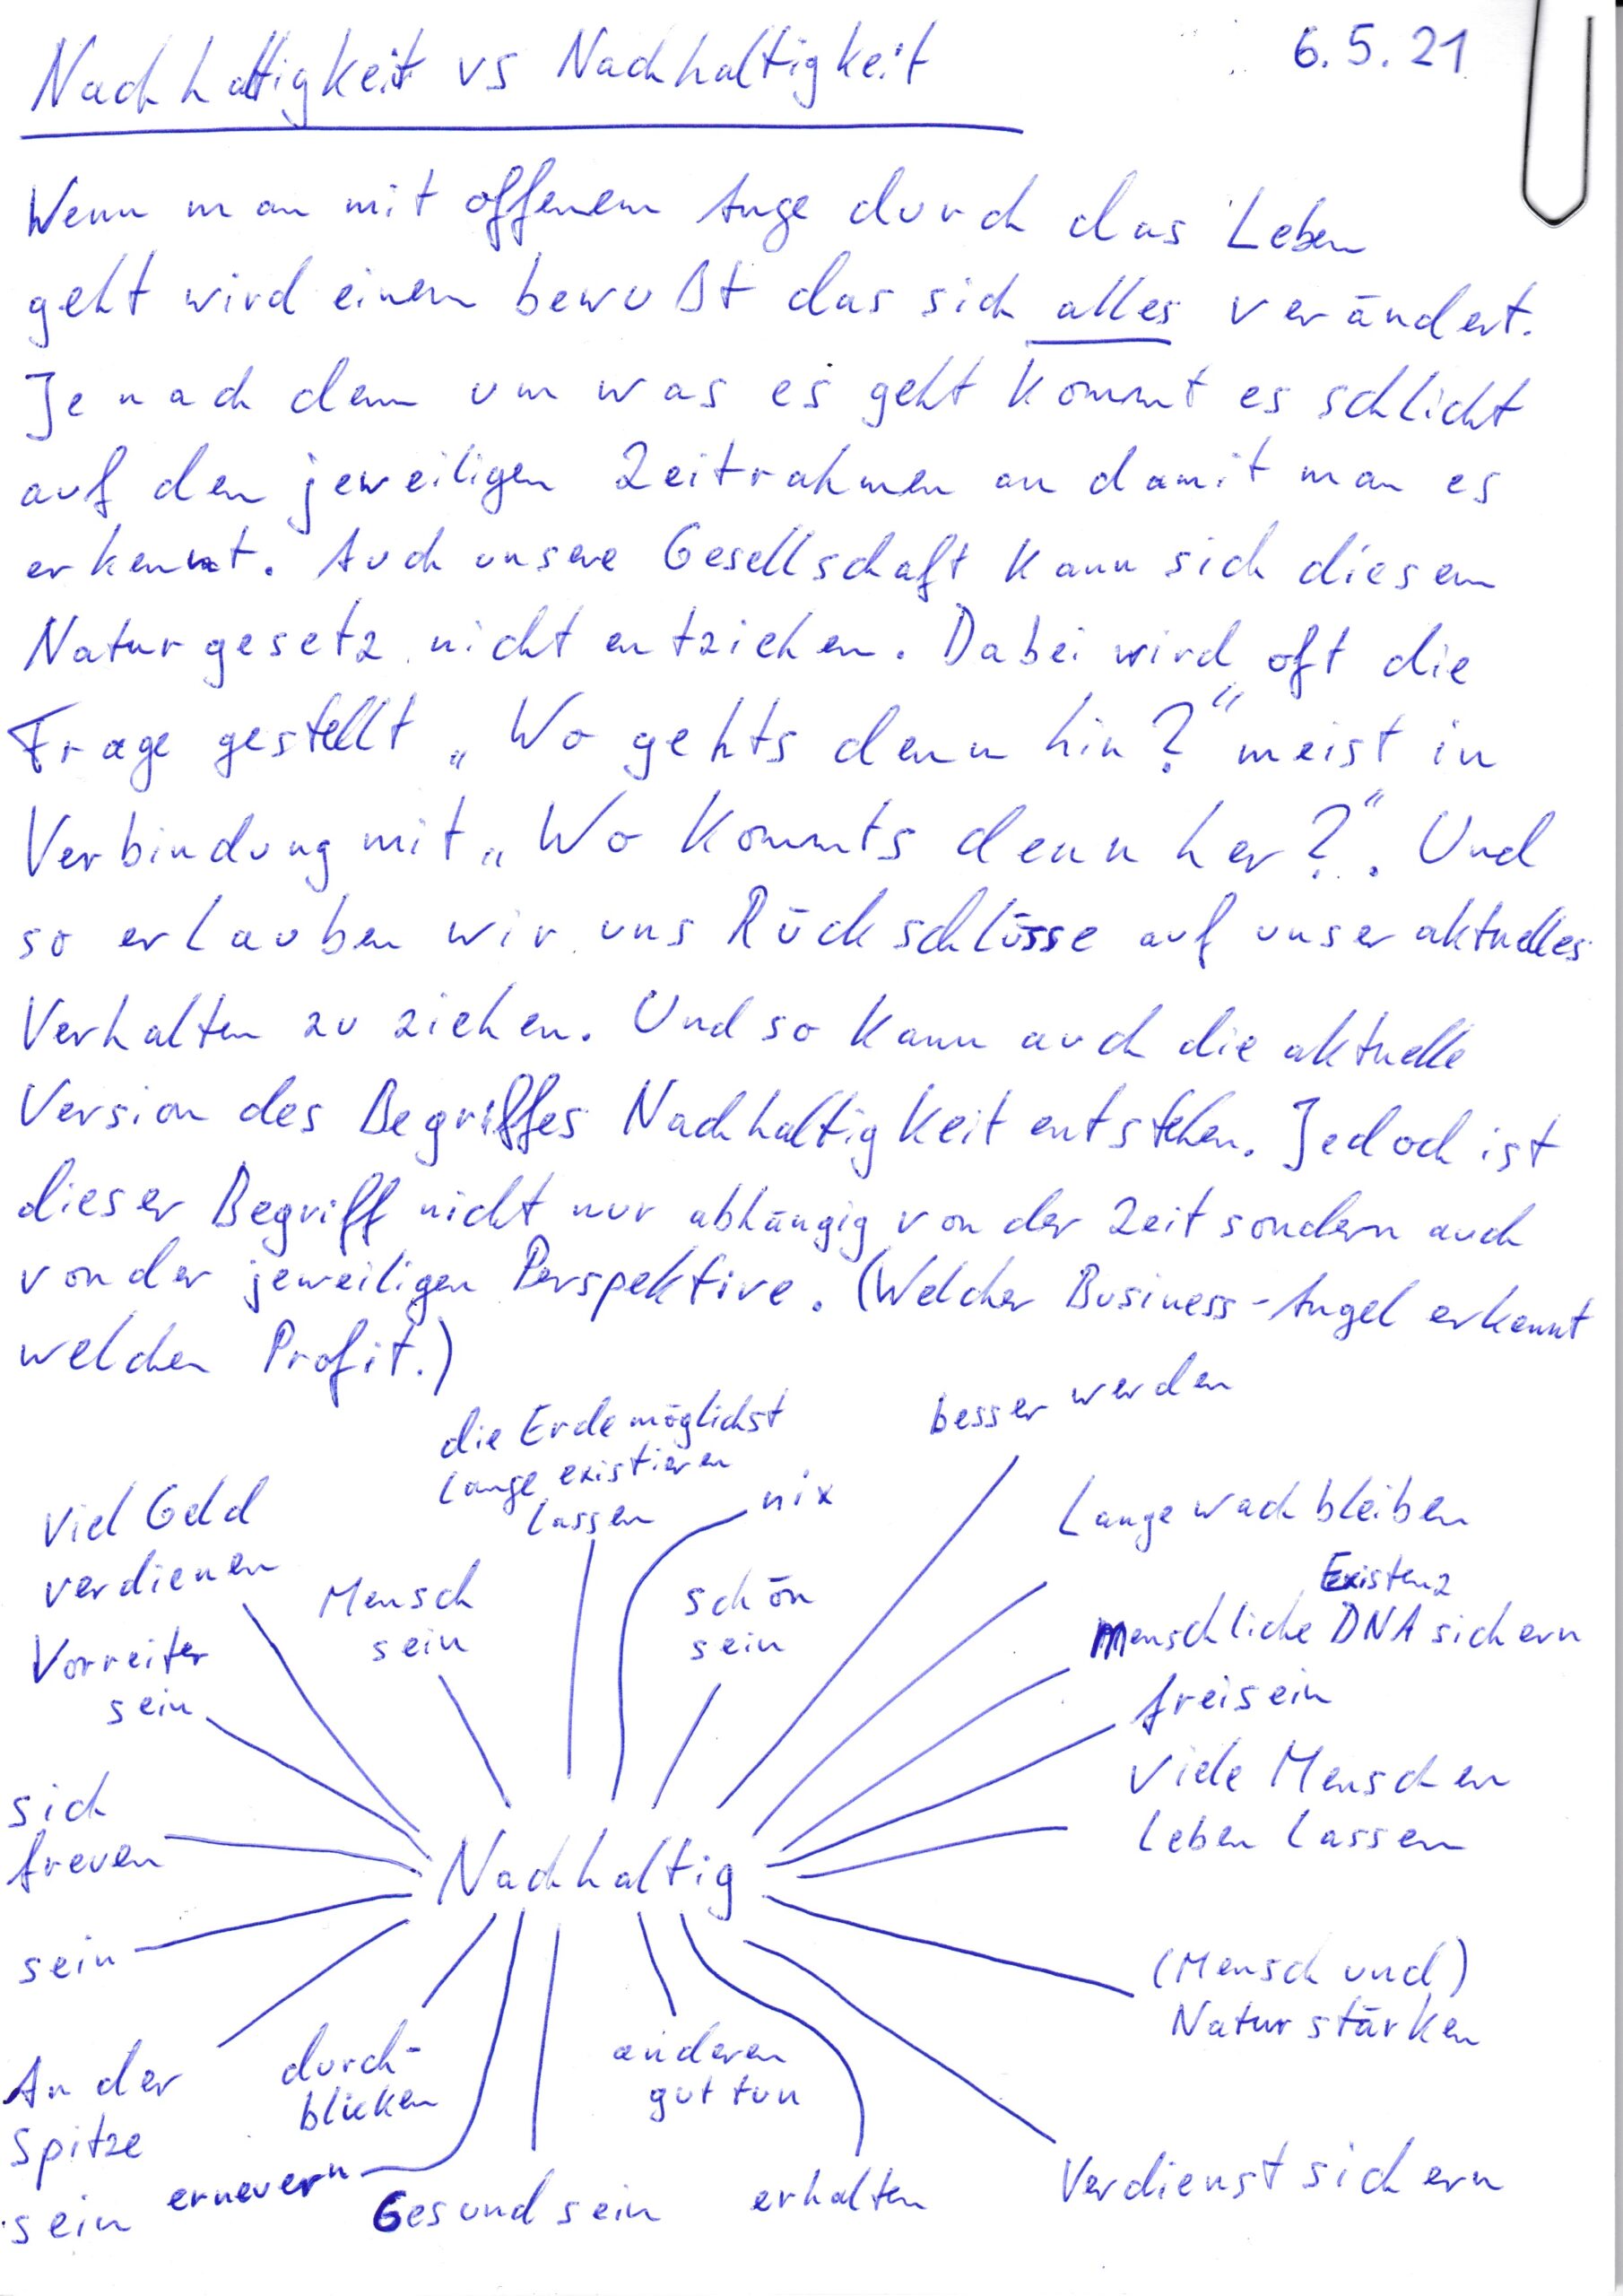 Nachhaltigkeit vs Nachhaltigkeit
6.5.21
Wenn man mit offenem Auge durch das Leben
geht wird einem bewußt das sich alles verändert.
Je nach dem um was es geht kommt es schlicht
auf den jeweiligen Zeitrahmen an damit man es
erkennt. Auch unsere Gesellschaft kann sich diesem
Naturgesetz nicht entziehen. Dabei wird oft die
Frage gestellt „Wo gehts denn hin?" meist in
Verbindung mit „Wo kommts denn her?". Und
so erlauben wir uns Rückschlüsse auf unser aktuelles
Verhalten zu ziehen. Und so kann auch die aktuelle
Version des Begriffes Nachhaltigkeit entstehen. Jedoch ist
dieser Begriff nicht nur abhängig von der Zeit sondern auch
von der jeweiligen Perspektive. (Welcher Business-Angel erkennt
welchen Profit.)
die Erde möglichst
lange existieren
lassen
besser werden
nix
Viel Geld
verdienen
Mensch
sein
schön
sein
Lange wach bleiben
Existenz
menschliche DNA sichern
Vorreiter
sein
frei sein
Viele Menschen
leben lassen
sich
freuen
Nachhaltig
sein
(Mensch und)
Natur stärken
An der
Spitze
sein
durch-
blicken
anderen
gut tun
erneuern
Gesund sein
erhalten
Verdienst sichern